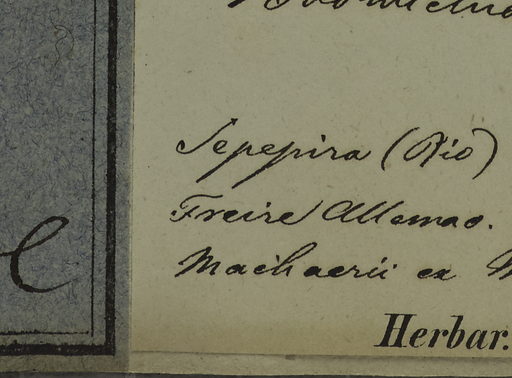 Sepepira (Rio)
Freire Allemao.
Machaerii ex
Herbar.